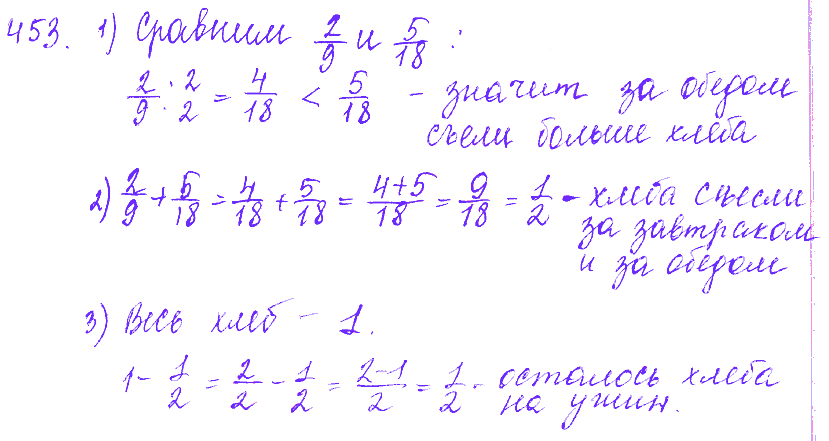 453. 1) Сравним 2/9 и 5/18 :
2/9 : 2/2 = 4/18 < 5/18 - значит за обедом
съели больше хлеба
2) 2/9 + 5/18 = 4/18 + 5/18 = (4+5)/18 = 9/18 = 1/2 - хлеба съели
за завтраком
и за обедом
3) Весь хлеб - 1.
1 - 1/2 = 2/2 - 1/2 = (2-1)/2 = 1/2 - осталось хлеба
на ужин.